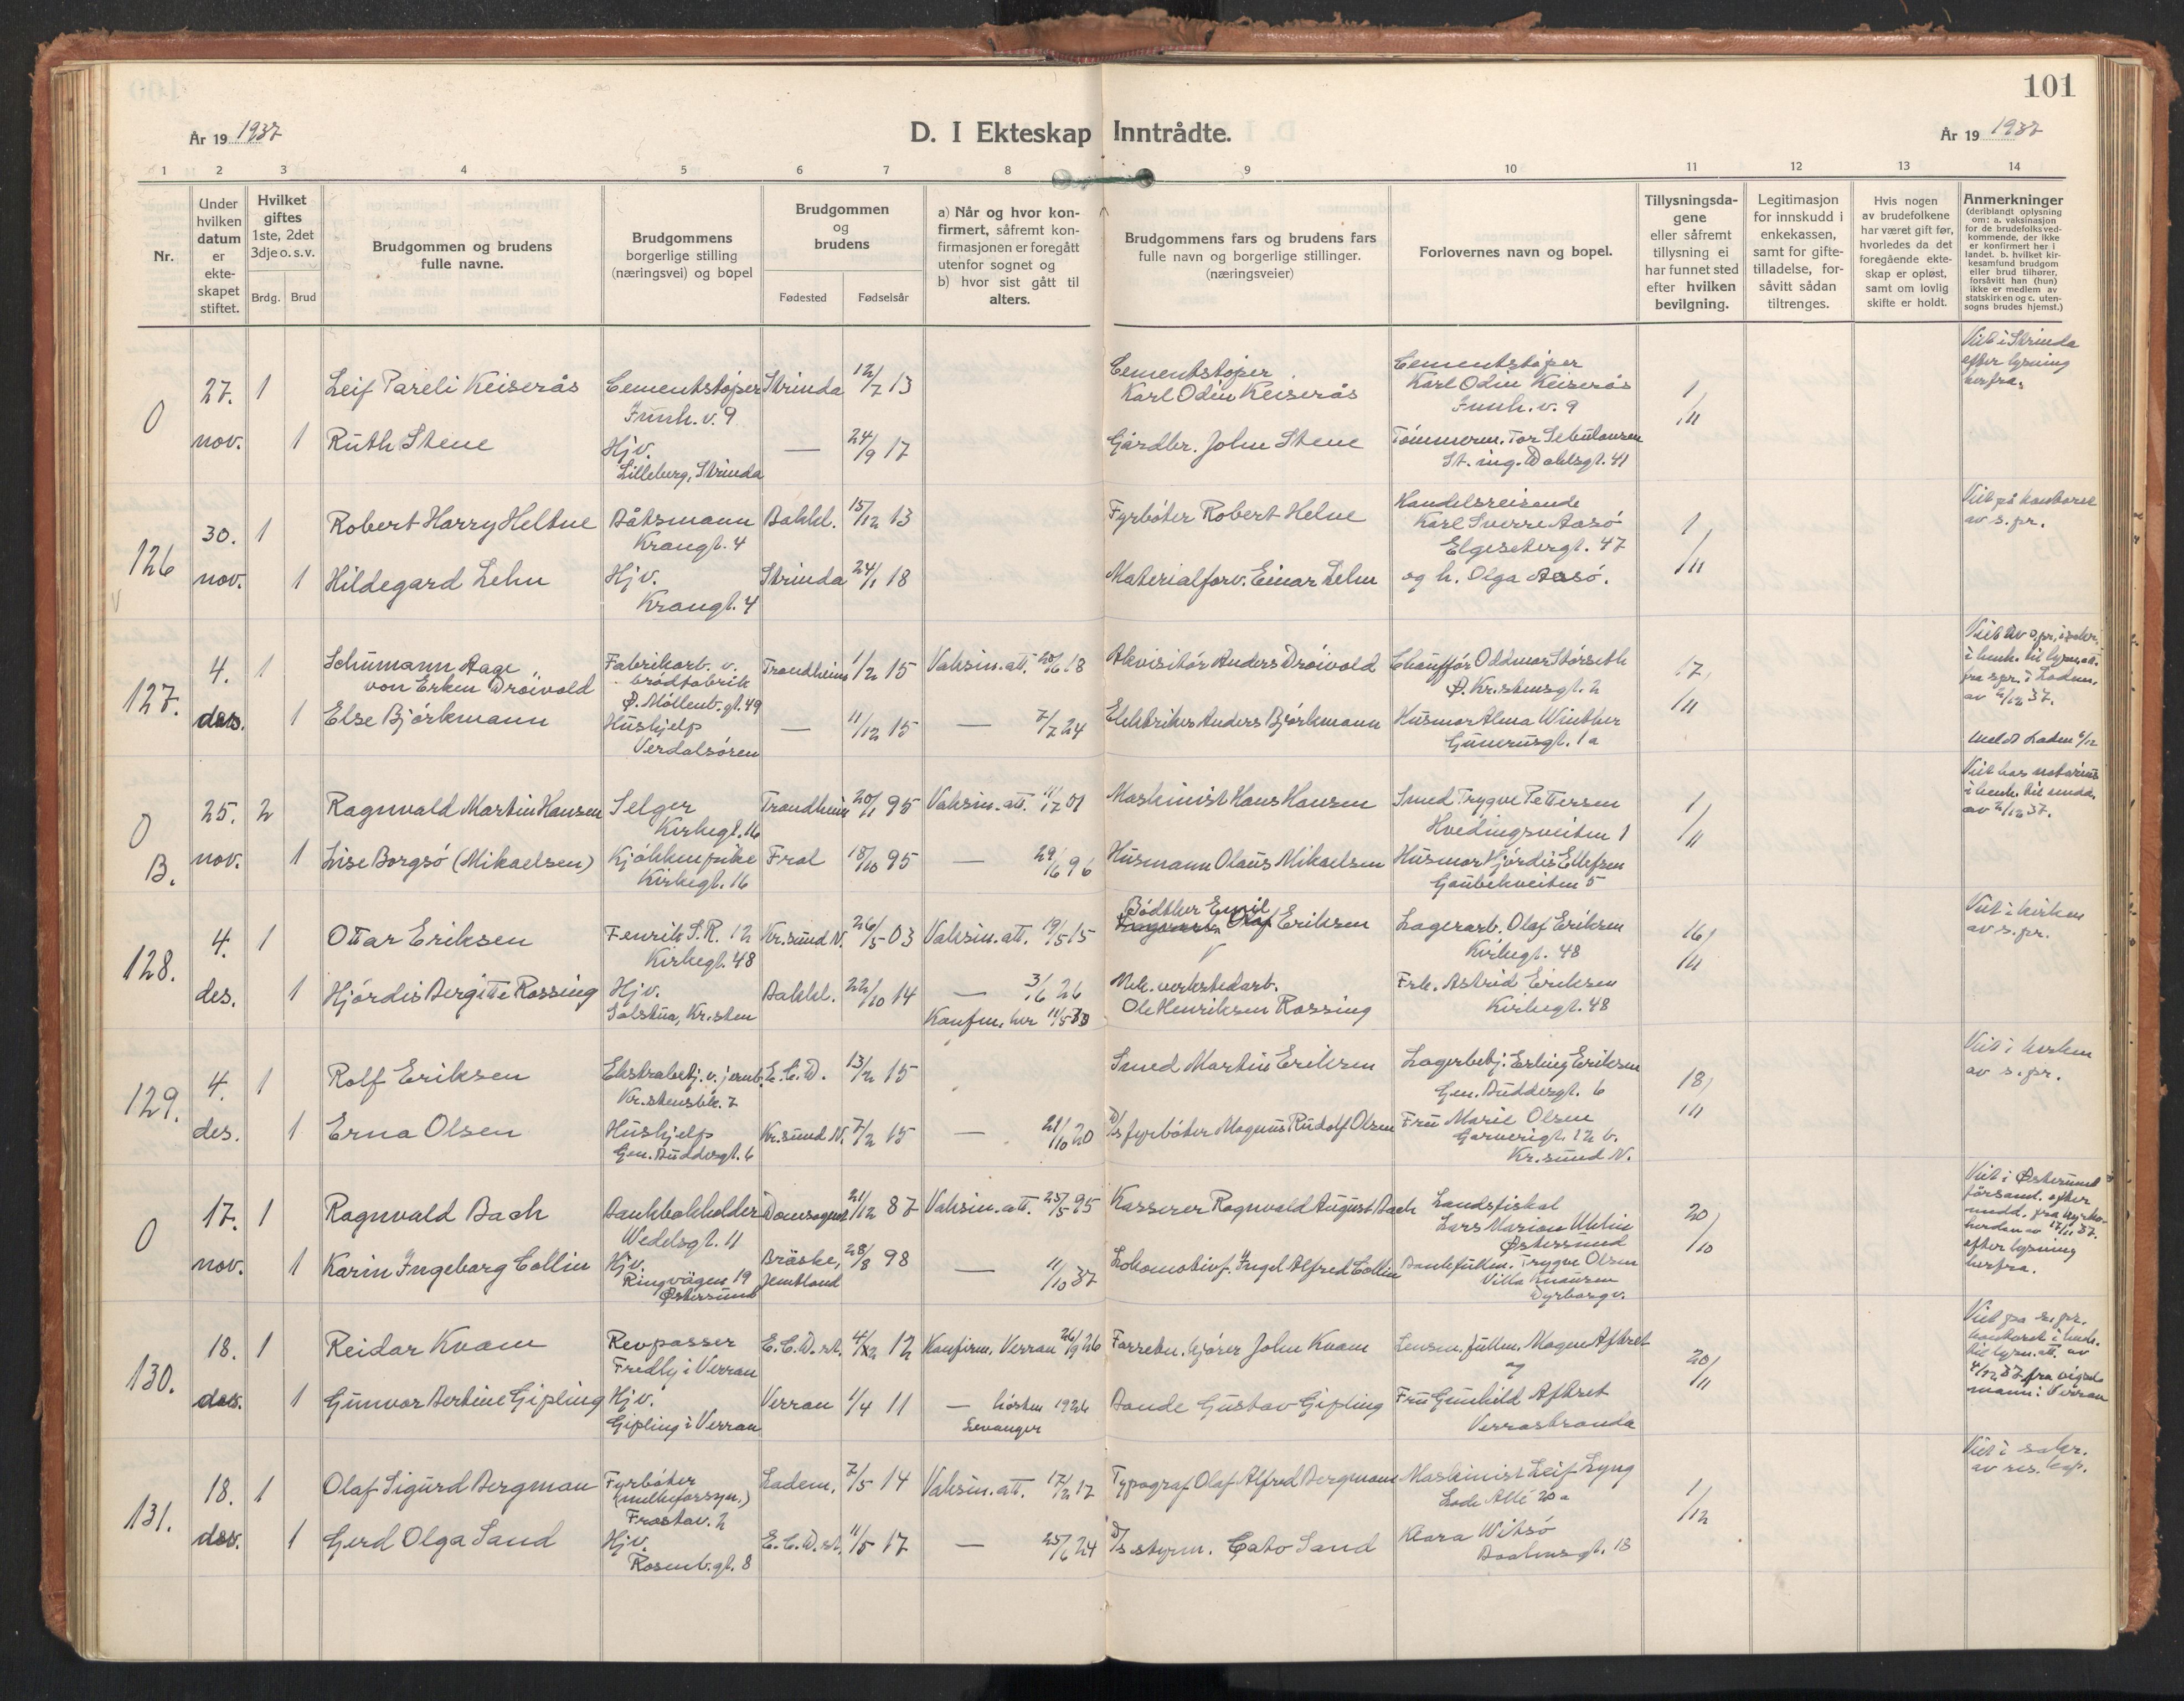 101
År 19 1937
D. I Ekteskap Inntrådte.
År 19 1937
1 2 3 4 5 6 7 8 9 10 11 12 13 14
Nr.
Under hvilken datum er ekte-skapet stiftet.
Hvilket giftes 1ste, 2det 3dje o. s. v.
Brdg. Brud
Brudgommen og brudens fulle navne.
Brudgommens borgerlige stilling (næringsvei) og bopel
Brudgommen og brudens
Fødested Fødselsår
a) Når og hvor kon-firmert, såfremt kon-firmasjonen er foregått utenfor sognet og b) hvor sist gått til alters.
Brudgommens fars og brudens fars fulle navn og borgerlige stillinger. (næringsveier)
Forlovernes navn og bopel.
Tillysningsda-gene eller såfremt tillysning ei har funnet sted efter hvilken bevilgning.
Legitimasjon for innskudd i enkekassen, samt for gifte-tilladelse, for-såvitt sådan tiltrenges.
Hvis nogen av brudefolkene har været gift før, hvorledes da det foregående ekte-skap er opløst, samt om lovlig skifte er holdt.
Anmerkninger (deriblandt oplysning om: a. vaksinasjon for de brudefolksved-kommende, der ikke er konfirmert her i landet. b. hvilket kir-kesamfund brudgom eller brud tilhører, forsåvitt han (hun) ikke er medlem av statskirken og c. uten-sogns brudes hjemst.)
0 27. 1 Leif Pareli Keiserås Cementstøper Strinda 12/7 13 Cementstøper Karl Odin Keiserås Cementstøper Karl Odin Keiserås 1/11 Viet i Strinda efter lysning herfra.
Junh. v. 9 Junh. v. 9
nov. 1 Ruth Stene Hjv. — 24/9 17 Gårdbr. John Stene Tømmerm. Tor
Lilleberg, Strinda St. ing. Dahlsgt. 41
126 30. 1 Robert Harry Heltne Båtsmann Bakkl. 15/12 13 Fyrbøter Robert Helne Handelsreisende Karl Sverre Aasø 1/11 Viet på kontoret av s.pr.
Krangt. 4 Elgesetergt. 47
nov. 1 Hildegard Lehn Hjv. Strinda 24/1 18 Materialforv. Einar Lehn og h. Olga Aasø.
Krangt. 4
127. 4. 1 Schumann Aage von Erken Drøivold Fabrikarb. v. brødfabrik Trondheim 1/2 15 Vaksin. att. 20/6 18 Akvisitør Anders Drøivold Chauffør Oddmar Størseth 17/11 Viet av s.pr. i i henh. til lysn.att. fra spr. i Ladem. av 4/12 37.
Ø. Møllenb. gt. 49 Ø. Kr.stensgt. 2
des. 1 Else Bjørkmann Hushjelp — 11/12 15 — 7/7 24 Elektriker Anders Bjørkmann Husmor Alma Winther
Verdalsøren Gunerusgt. 1a Meldt Laden 6/12
0 B. 25. 2 Ragnvald Martin Hansen Selger Trondheim 20/1 95 Vaksin. att. 11/7 01 Maskinist Hans Hansen Smed Trygve Pettersen 1/11 Viet hos notarius i henh. til medd. av 2/12 37.
Kirkegt. 16 Hvedingsveiten 1
nov. 1 Lise Borgsø (Mikaelsen) Kjøkkenpike Frol 18/10 95 — 29/6 96 Husmann Olaus Mikaelsen Husmor Hjørdis Ellefsen
Kirkegt. 16 Gaubekveiten 5
128. 4. 1 Ottar Eriksen Fenrik I.R. 12 Kr.sund N. 26/5 03 Vaksin. att. 19/5 15 Bødtker Emil Eriksen Lagerarb. Olaf Eriksen 16/11 Viet i kirken av s.pr.
Kirkegt. 48 Kirkegt. 48
des. 1 Hjørdis Bergitte Rossing Hjv. Bakkl. 22/10 14 — 3/6 26 Mek. verkstedarb. Ole Henriksen Rossing Frk. Astrid Eriksen
Solstua, Kr.sten Konfm. her 11/5 30 Kirkegt. 48
129. 4. 1 Rolf Eriksen Ekstrabetj. v. jernb. E.C.D. 13/2 15 Smed Martin Eriksen Lagerbetj. Erling Eriksen 18/11 Viet i kirken av s.pr.
Kr.stensbk. 7 Gen. Buddesgt. 6
des. 1 Erna Olsen Hushjelp Kr.sund N. 7/2 15 — 21/10 20 D/s fyrbøter Magnus Rudolf Olsen Fru Marie Olsen
Gen. Buddesgt. 6 Garverigt. 12 b. Kr.sund N.
0 17. 1 Ragnvald Bach Bankbokholder Domsognet 21/12 87 Vaksin. att. 25/5 95 Kasserer Ragnvald August Bach Landsfiskal Lars Marion 20/10 Viet i Østersund församl. efter medd. fra kyrko-herden av 17/11 37. efter lysning herfra.
Wedelsgt. 11 Østersund
nov. 1 Karin Ingeborg Collin Hjv. Bräcke, Jemtland 28/8 98 — 11/10 37 Lokomotivf. Ingel Alfred Collin Bankfullm. Trygve Olsen
Ringvägen 19 Østersund Villa Knausen Dyrborgv.
130. 18. 1 Reidar Kvam Revpasser E.C.D. st. 4/12 12 Konfirm. Verran 26/9 26 Forretn. kjører John Kvam Lensm. fullm. Magne Aftret 20/11 Viet på s.pr. kontoret i henh. til lysn. att. av 4/12 37 fra vigsels mann i Verran
Fredly i Verran og
des. 1 Gunvor Bertine Gipling Hjv. Verran 1/4 11 — høsten 1926 Bonde Gustav Gipling Fru Gunhild Aftret
Gipling i Verran Levanger Verrastranda
131. 18. 1 Olaf Sigurd Bergman Fyrbøter (melkeforsyn.) Ladem. 7/5 14 Vaksin. att. 17/2 17 Typograf Olaf Alfred Bergmann Maskinist Leif Lyng 1/12 Viet i sakr. av res. kap.
Frostav. 2 Lade Allé 20a
des. 1 Gerd Olga Sand Hjv. E.C.D. st. 11/5 17 — 25/6 24 D/s styrm. Cato Sand Klara Witsø
Rosenb. gt. 8 gt. 18